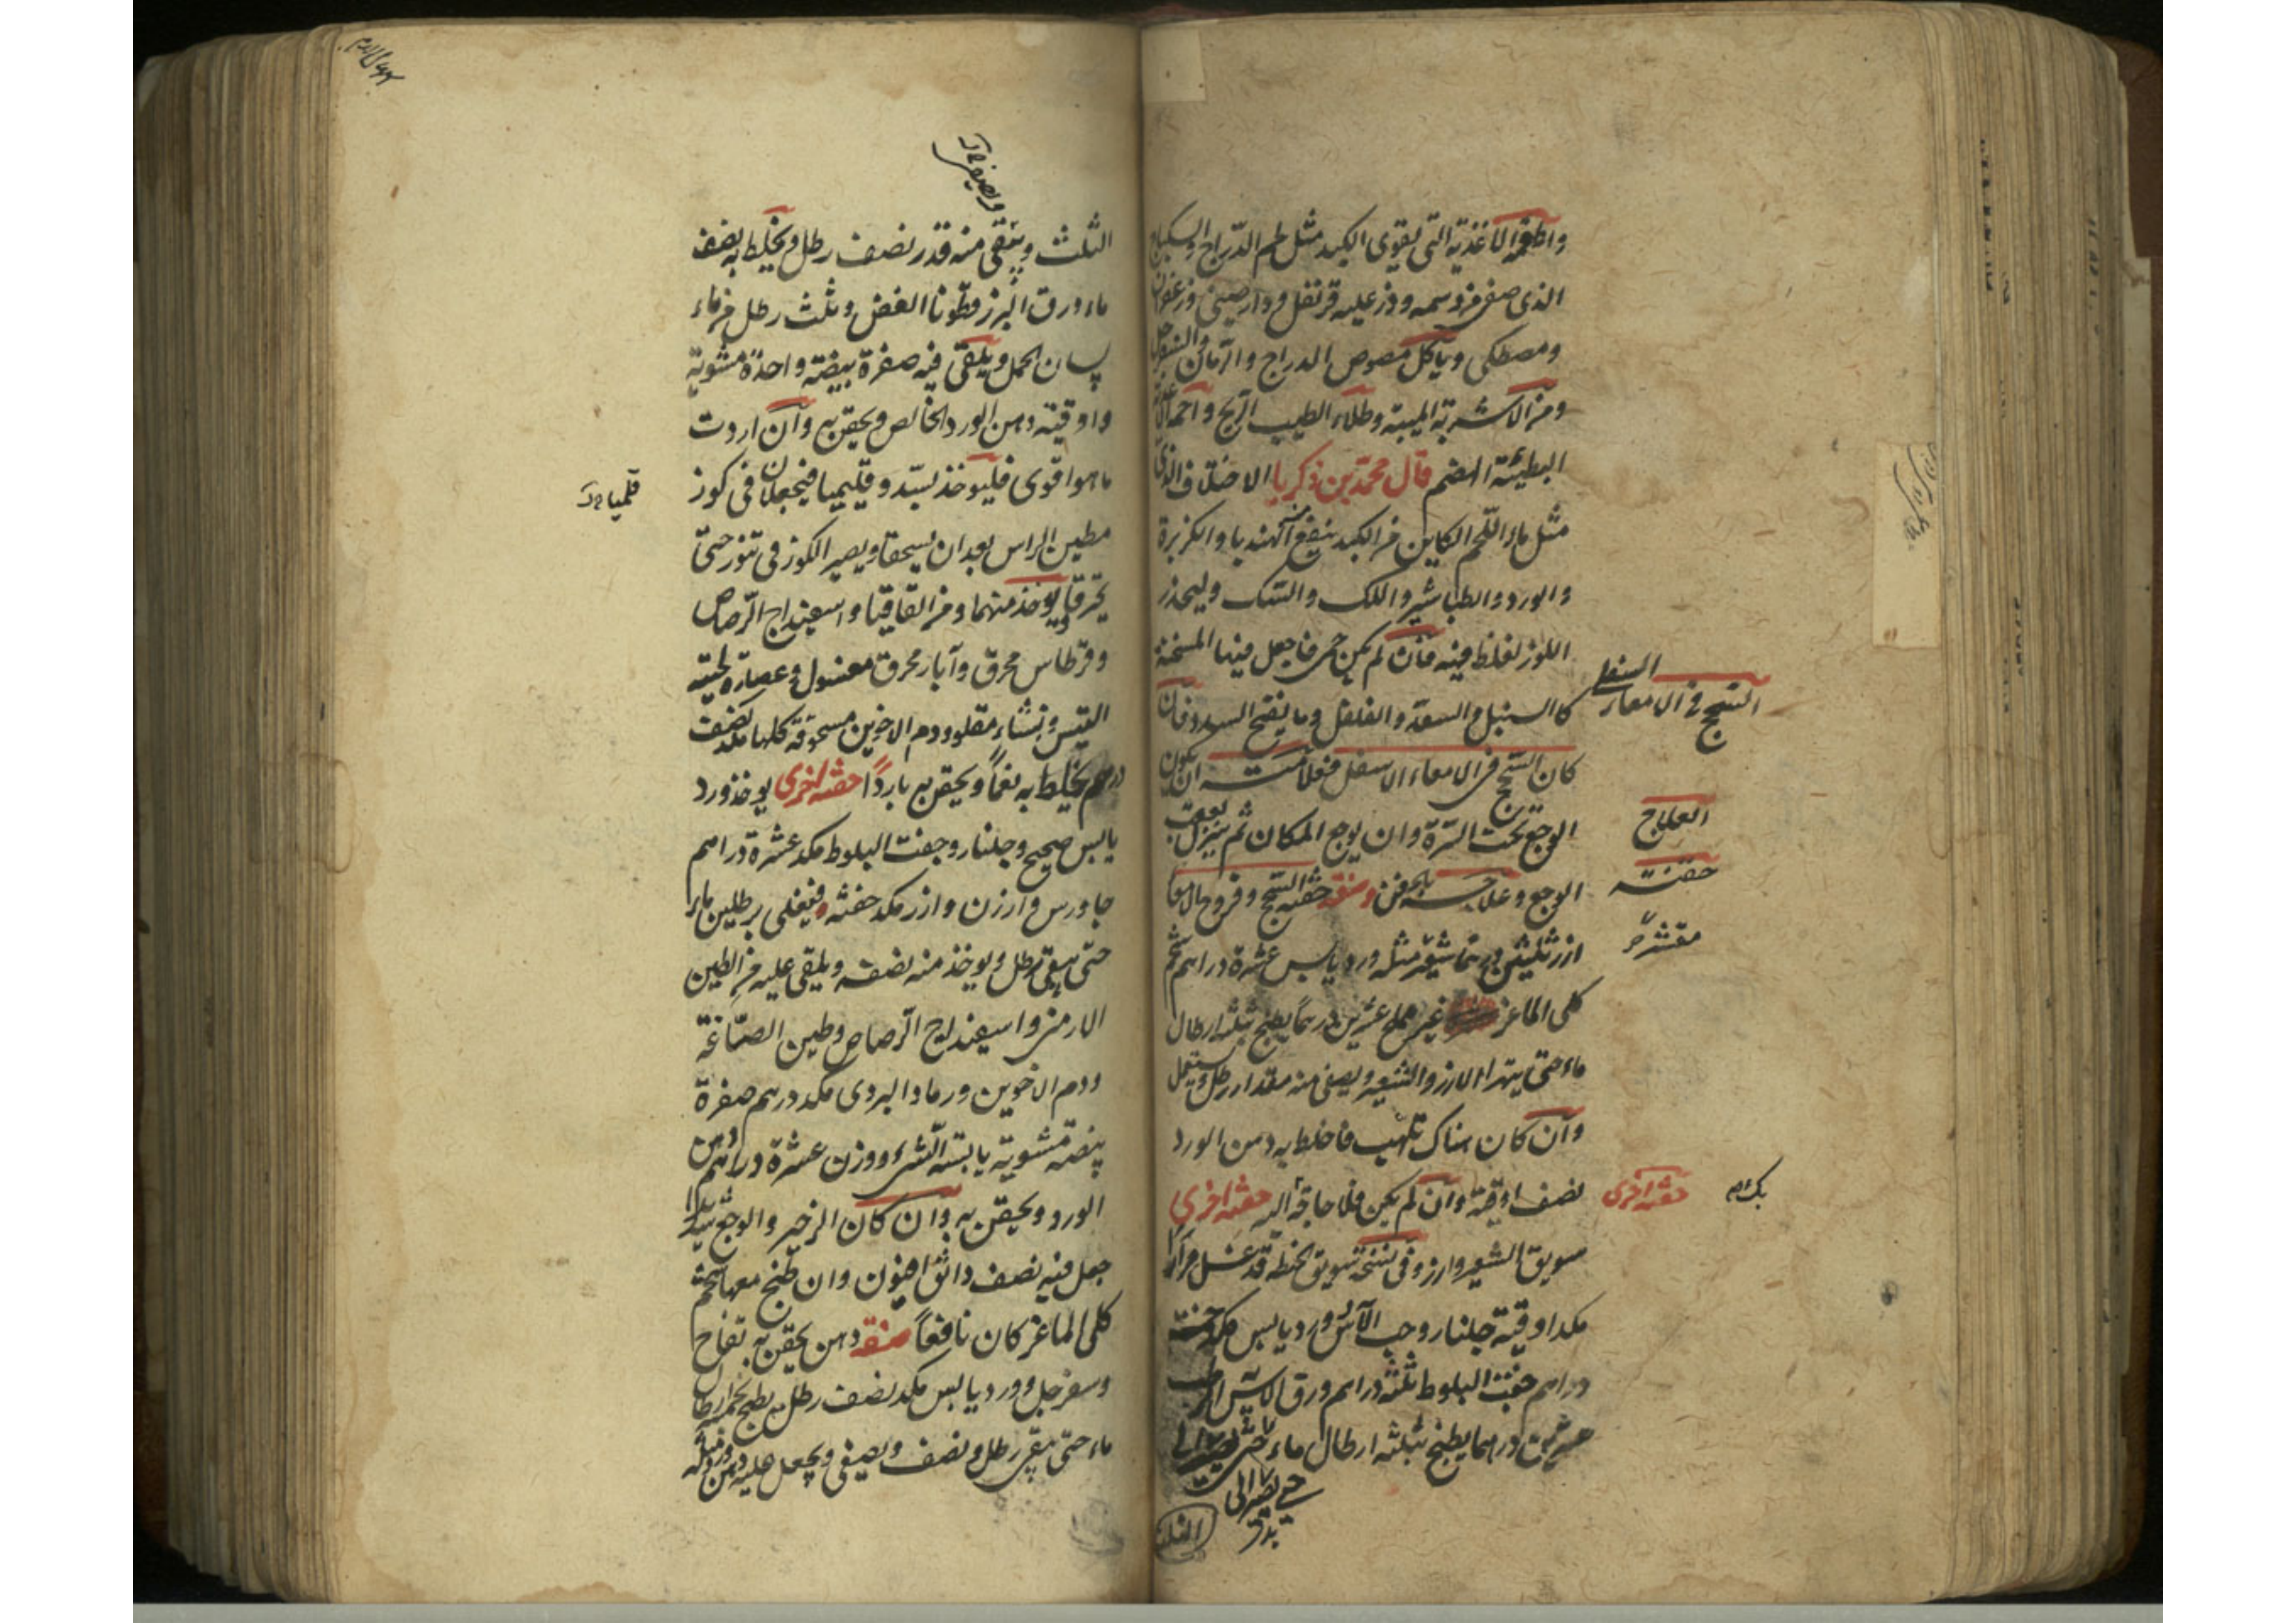 واطعمه الاغذية التى يقوى الكبد مثل لحم الدراج والسكباج
الذى صفى من دسمه وذر عليه قرنفل ودارصينى وزعفران
ومصطكى وياكل مصوص الدراج والرمان والسفرجل
ومن الاشربة الميبة وطلاء الطيب الريح واحمه الاغذية
البطيئة الهضم قال محمد بن زكريا الاختلاف الذى
مثل ماء اللحم الكاين من الكبد ينفع الهندبا والكزبرة
والورد والطباشير واللك والسك وليحذر
اللوز لغلظ فيه فان لم يكن حمى فاجعل فيها المسخنة
كالسنبل والسعد والفلفل وما يفتح السدد فان
كان السحج فى الامعاء الاسفل فعلامته ان يكون
الوجع تحت السرة وان يوجع المكان ثم ينزل بعقب
الوجع وعلاجه بالحقن حقنة السحج وقروح الامعا
ارز ثلثين درهما شعير مثله ورد يابس عشرة دراهم شحم
كلى الماعز غير مملح عشرين درهما يطبخ بثلثة ارطال
ماء حتى يتهرا الارز والشعير ويصفى منه مقدار رطل ويستعمل
وان كان هناك تلهب فاخلط به دهن الورد
نصف اوقية وان لم يكن فلا حاجة اليه حقنة اخرى
سويق الشعير وارز وفى نسخة سويق الحنطة قد غسل مرارا
مكد اوقية جلنار وحب الآس وورد يابس مكد خمسة
دراهم جفت البلوط ثلثة دراهم ورق الآس الرطب
عشرين درهما يطبخ بثلثة ارطال ماء حتى يصير الى
حتى يصير الى
الثلث
السحج فى الامعاء السفلى
العلاج
حقنة
مقشر
حقنة اخرى
الثلث وينقى منه قدر نصف رطل ويخلط به نصف
ماء ورق البزرقطونا الغض وثلث رطل من ماء
لسان الحمل ويلقى فيه صفرة بيضة واحدة مشوية
واوقية دهن الورد الخالص ويحقن به وان اردت
ما هو اقوى فليوخذ بسد وقليميا فيجعلان فى كوز
مطين الراس بعد ان يسحقا ويصير الكوز فى تنور حتى
يحترقا ويوخذ منهما ومن القاقيا واسفيداج الرصاص
وقرطاس محرق وآبار محرق مغسول وعصارة لحية
التيس ونشاء مقلو ودم الاخوين مسحوقة كلها مكد نصف
درهم يخلط به نعما ويحقن به باردا حقنة اخرى يوخذ ورد
يابس صحيح وجلنار وجفت البلوط مكد عشرة دراهم
جاورس وارزن وارز مكد حفنة فيغلى برطلين ماء
حتى يبقى رطل ويوخذ منه نصفه ويلقى عليه من الطين
الارمنى واسفيداج الرصاص وطين الصاغة
ودم الاخوين ورماد البردى مكد درهم صفرة
بيضة مشوية يابسة الشى ووزن عشرة دراهم دهن
الورد ويحقن به وان كان الزحير والوجع شديدا
جعل فيه نصف دانق افيون وان طبخ معها شحم
كلى الماعز كان نافعا دهن يحقن به تفاح
وسفرجل وورد يابس مكد نصف رطل يطبخ ارطال
ماء حتى يبقى رطل ونصف ويصفى ويجعل عليه
قلميا